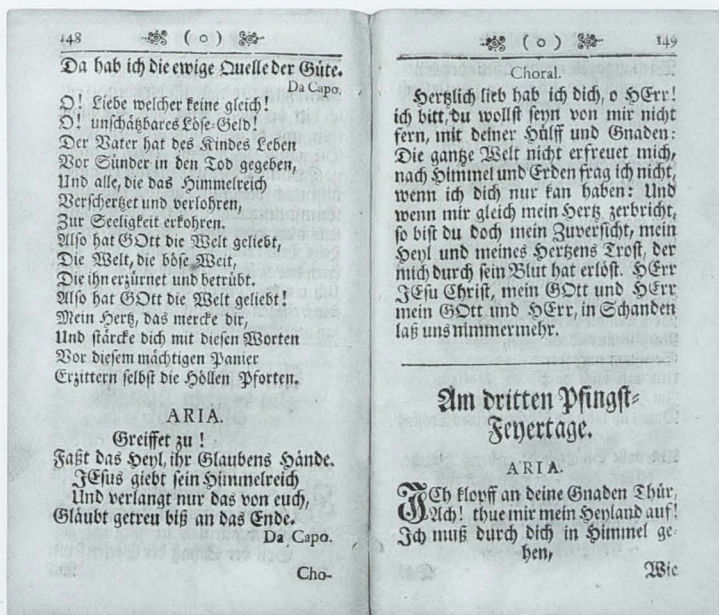 148 ( o )
Da hab ich die ewige Quelle der Güte.
Da Capo.
O! Liebe welcher keine gleich!
O! unschätzbares Löse-Geld!
Der Vater hat des Kindes Leben
Vor Sünder in den Tod gegeben,
Und alle, die das Himmelreich
Verschertzet und verlohren,
Zur Seeligkeit erkohren.
Also hat GOtt die Welt geliebt,
Die Welt, die böse Welt,
Die ihn erzürnet und betrübt.
Also hat GOtt die Welt geliebt!
Mein Hertz, das mercke dir,
Und stärcke dich mit diesen Worten
Vor diesem mächtigen Panier
Erzittern selbst die Höllen Pforten.
ARIA.
Greiffet zu!
Faßt das Heyl, ihr Glaubens Hände.
JEsus giebt sein Himmelreich
Und verlangt nur das von euch,
Gläubt getreu biß an das Ende.
Da Capo.
Cho-
( o ) 149
Choral.
Hertzlich lieb hab ich dich, o HErr!
ich bitt, du wollst seyn von mir nicht
fern, mit deiner Hülff und Gnaden:
Die gantze Welt nicht erfreuet mich,
nach Himmel und Erden frag ich nicht,
wenn ich dich nur kan haben: Und
wenn mir gleich mein Hertz zerbricht,
so bist du doch mein Zuversicht, mein
Heyl und meines Hertzens Trost, der
mich durch sein Blut hat erlöst. HErr
JEsu Christ, mein GOtt und HErr
mein GOtt und HErr, in Schanden
laß uns nimmermehr.
Am dritten Pfingst-
Feyertage.
ARIA.
ICh klopff an deine Gnaden Thür,
Ach! thue mir mein Heyland auf!
Ich muß durch dich in Himmel ge-
hen,
Wie